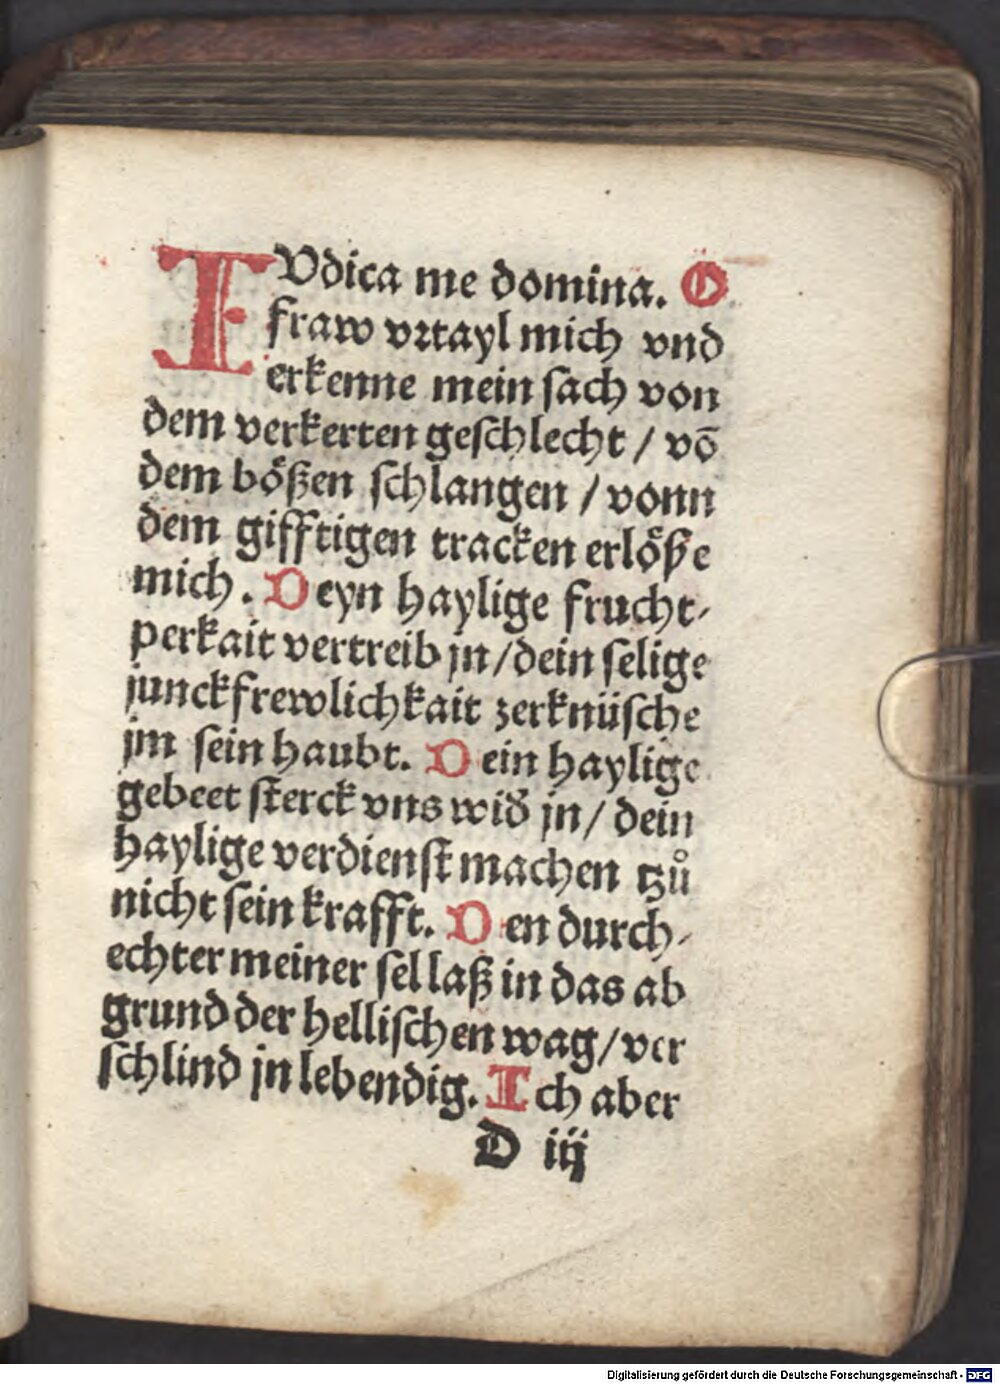 IVdica me domina. O
fraw vꝛtayl mich vnd
erkenne mein ſach von
dem verkerten geſchlecht / vō
dem boͤßen ſchlangen / vonn
dem gifftigen tracken erloͤße
mich. Deyn haylige frucht⸗
perkait vertreib jn / dein ſelige
junckfrewlichkait zerknüſche
jm ſein haubt. Dein haylige
gebeet ſterck vns wid̕ jn / dein
haylige verdienſt machen tzuͦ
nicht ſein krafft. Den durch⸗
echter meiner ſel laß in das ab
grund der helliſchen wag / ver
ſchlind jn lebendig. Ich aber
D iij
Digitalisierung gefördert durch die Deutsche Forschungsgemeinschaft - DFG